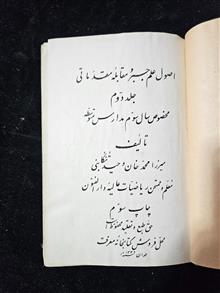 اصول علم جبر و مقابله مقدماتی
جلد دوم
مخصوص سال سوم مدارس متوسطه
تألیف
میرزا محمد خان وحید تنکابنی
معلم و ممتحن ریاضیات عالیه دارالفنون
چاپ سوم
حق طبع و تقلید محفوظ است
محل فروش کتابخانه معرفت
طهران